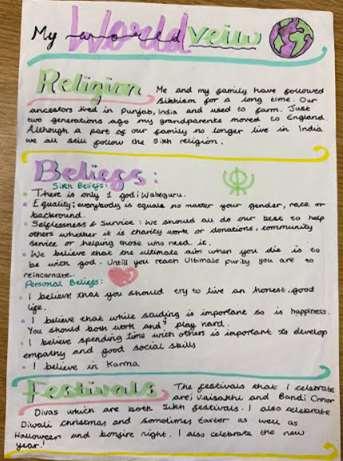 My World veiw
Religion Me and my family have followed
Sikhism for a long time. Our
ancestors lived in Punjab, India and used to farm. Just
two generations ago my grandparents moved to England
Although a part of our family no longer live in India
we all still follow the Sikh religion.
Beliefs:
Sikh Beliefs:
• There is only 1 god: Waheguru.
• Equality: everybody is equals no matter your gender, race or
background.
• Selflessness & Service: We should all do our best to help
others whether it is charity work or donations, community
service or helping those who need it.
• We believe that the ultimate aim when you die is to
be with god. Untill you reach Ultimate purity you are to
reincarnate.
Personal Beliefs:
• I believe that you should try to live an honest, good
life.
• I believe that while studing is important so is happiness.
You should both work and play hard.
• I believe spending time with others is important to develop
empathy and good social skills
• I believe in Karma
Festivals The festivals that I celebrate
are; Vaisakhi and Bandi Chhor
Divas which are both Sikh festivals. I also celebrate
Diwali christmas and sometimes Easter as well as
Halloween and bonfire night. I also celebrate the new
year!